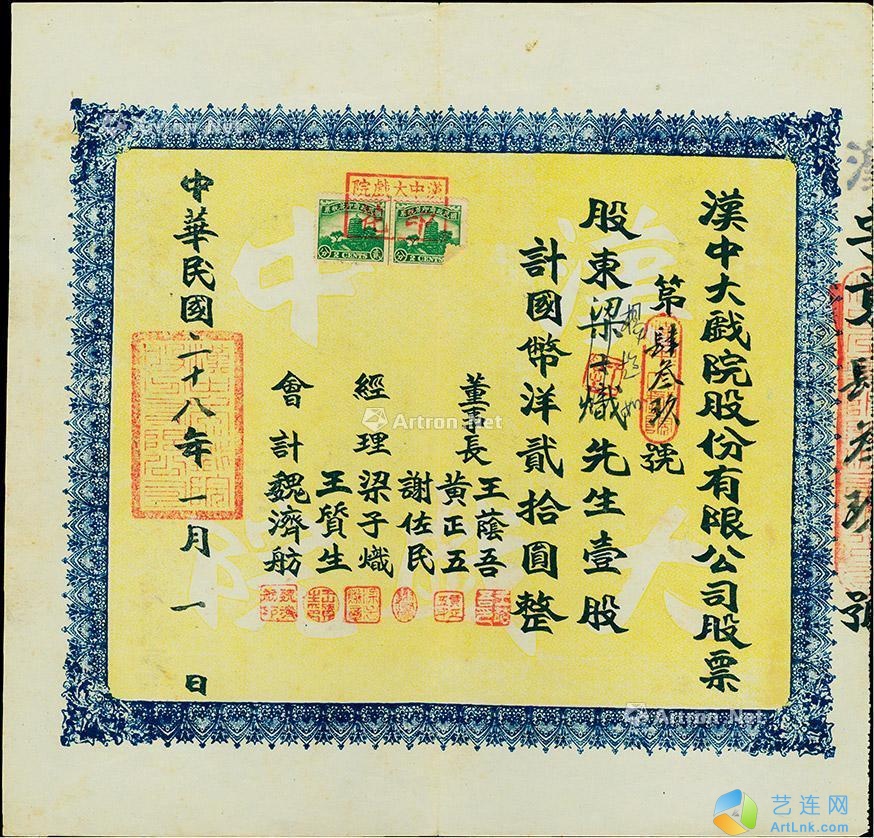 漢中大戲院股份有限公司股票
第肆叁玖號
股東梁子熾先生壹股
計國幣洋貳拾圓整
董事長
王蔭吾
黃正五
謝佐民
經理
梁子熾
王質生
會計
魏濟舫
中華民國二十八年一月一日
漢中大戲院
漢中大戲院
2 CENTS
2 CENTS
肆叁玖號
Artron.Net
Artron.Net
Artron.Net
艺连网
ArtLnk.com